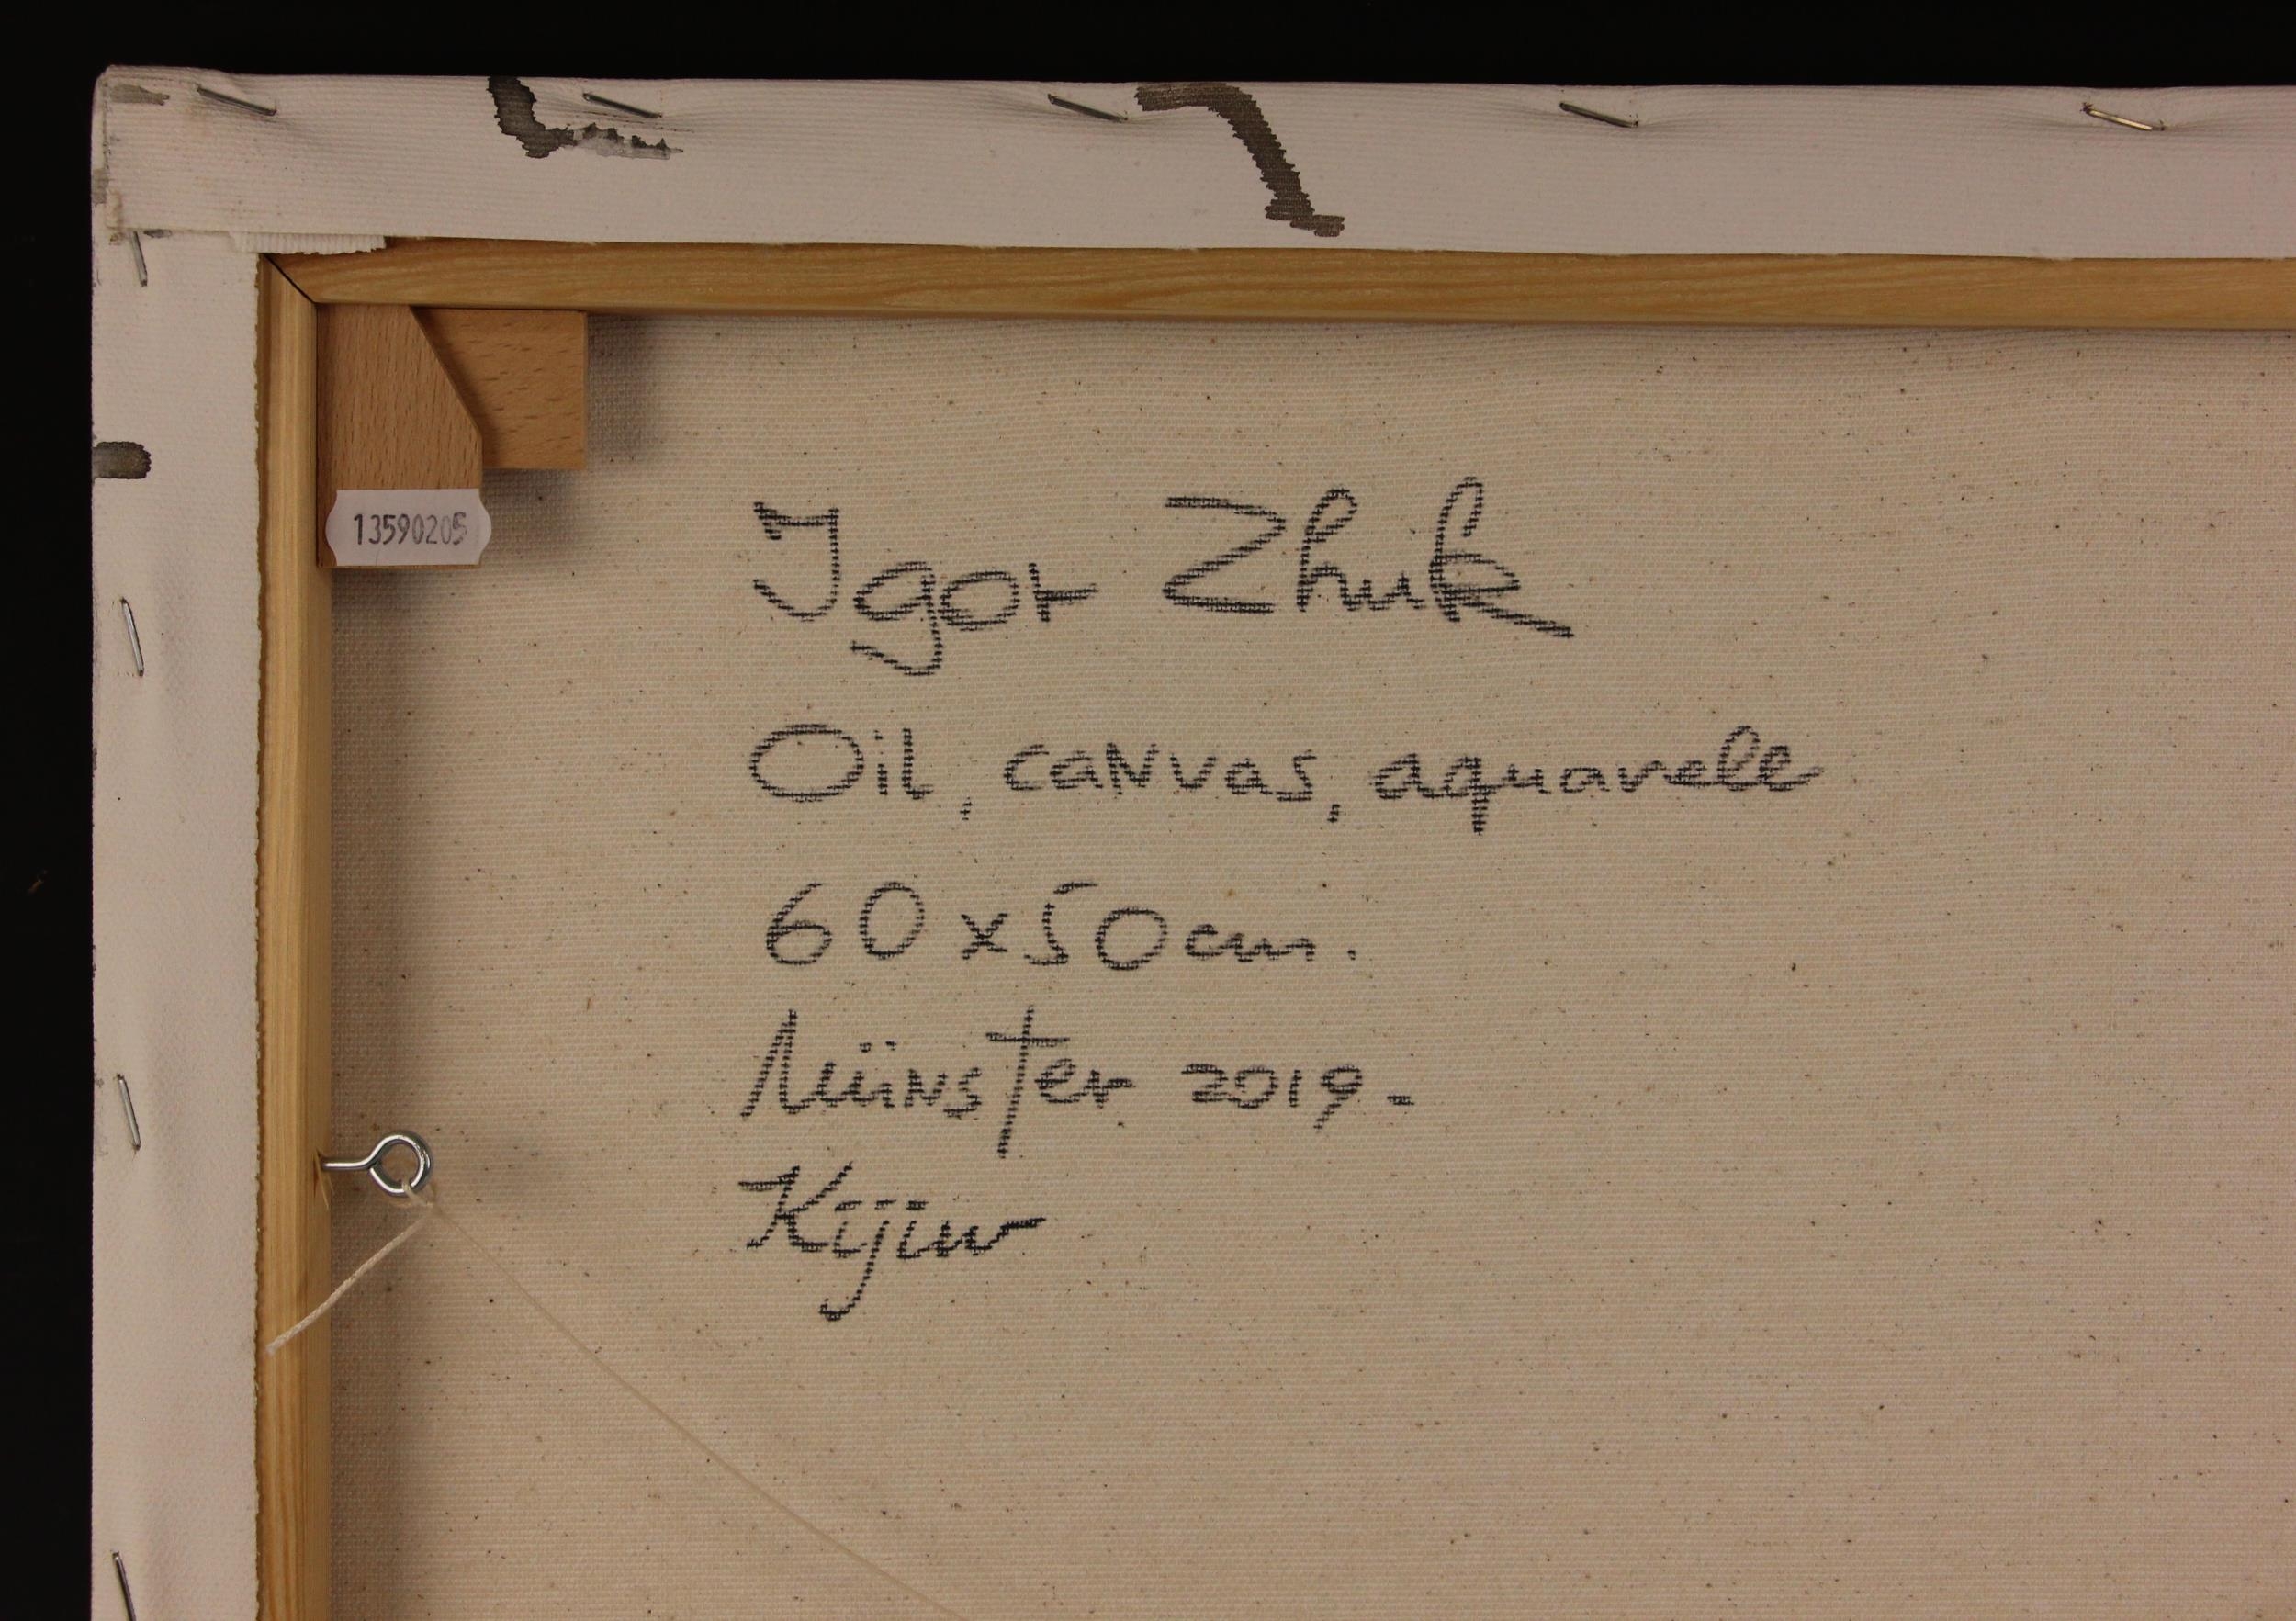 13590205
Igor Zhuk
Oil, canvas, aquarell
60 x 50 cm.
Münster 2019 -
Kijiw